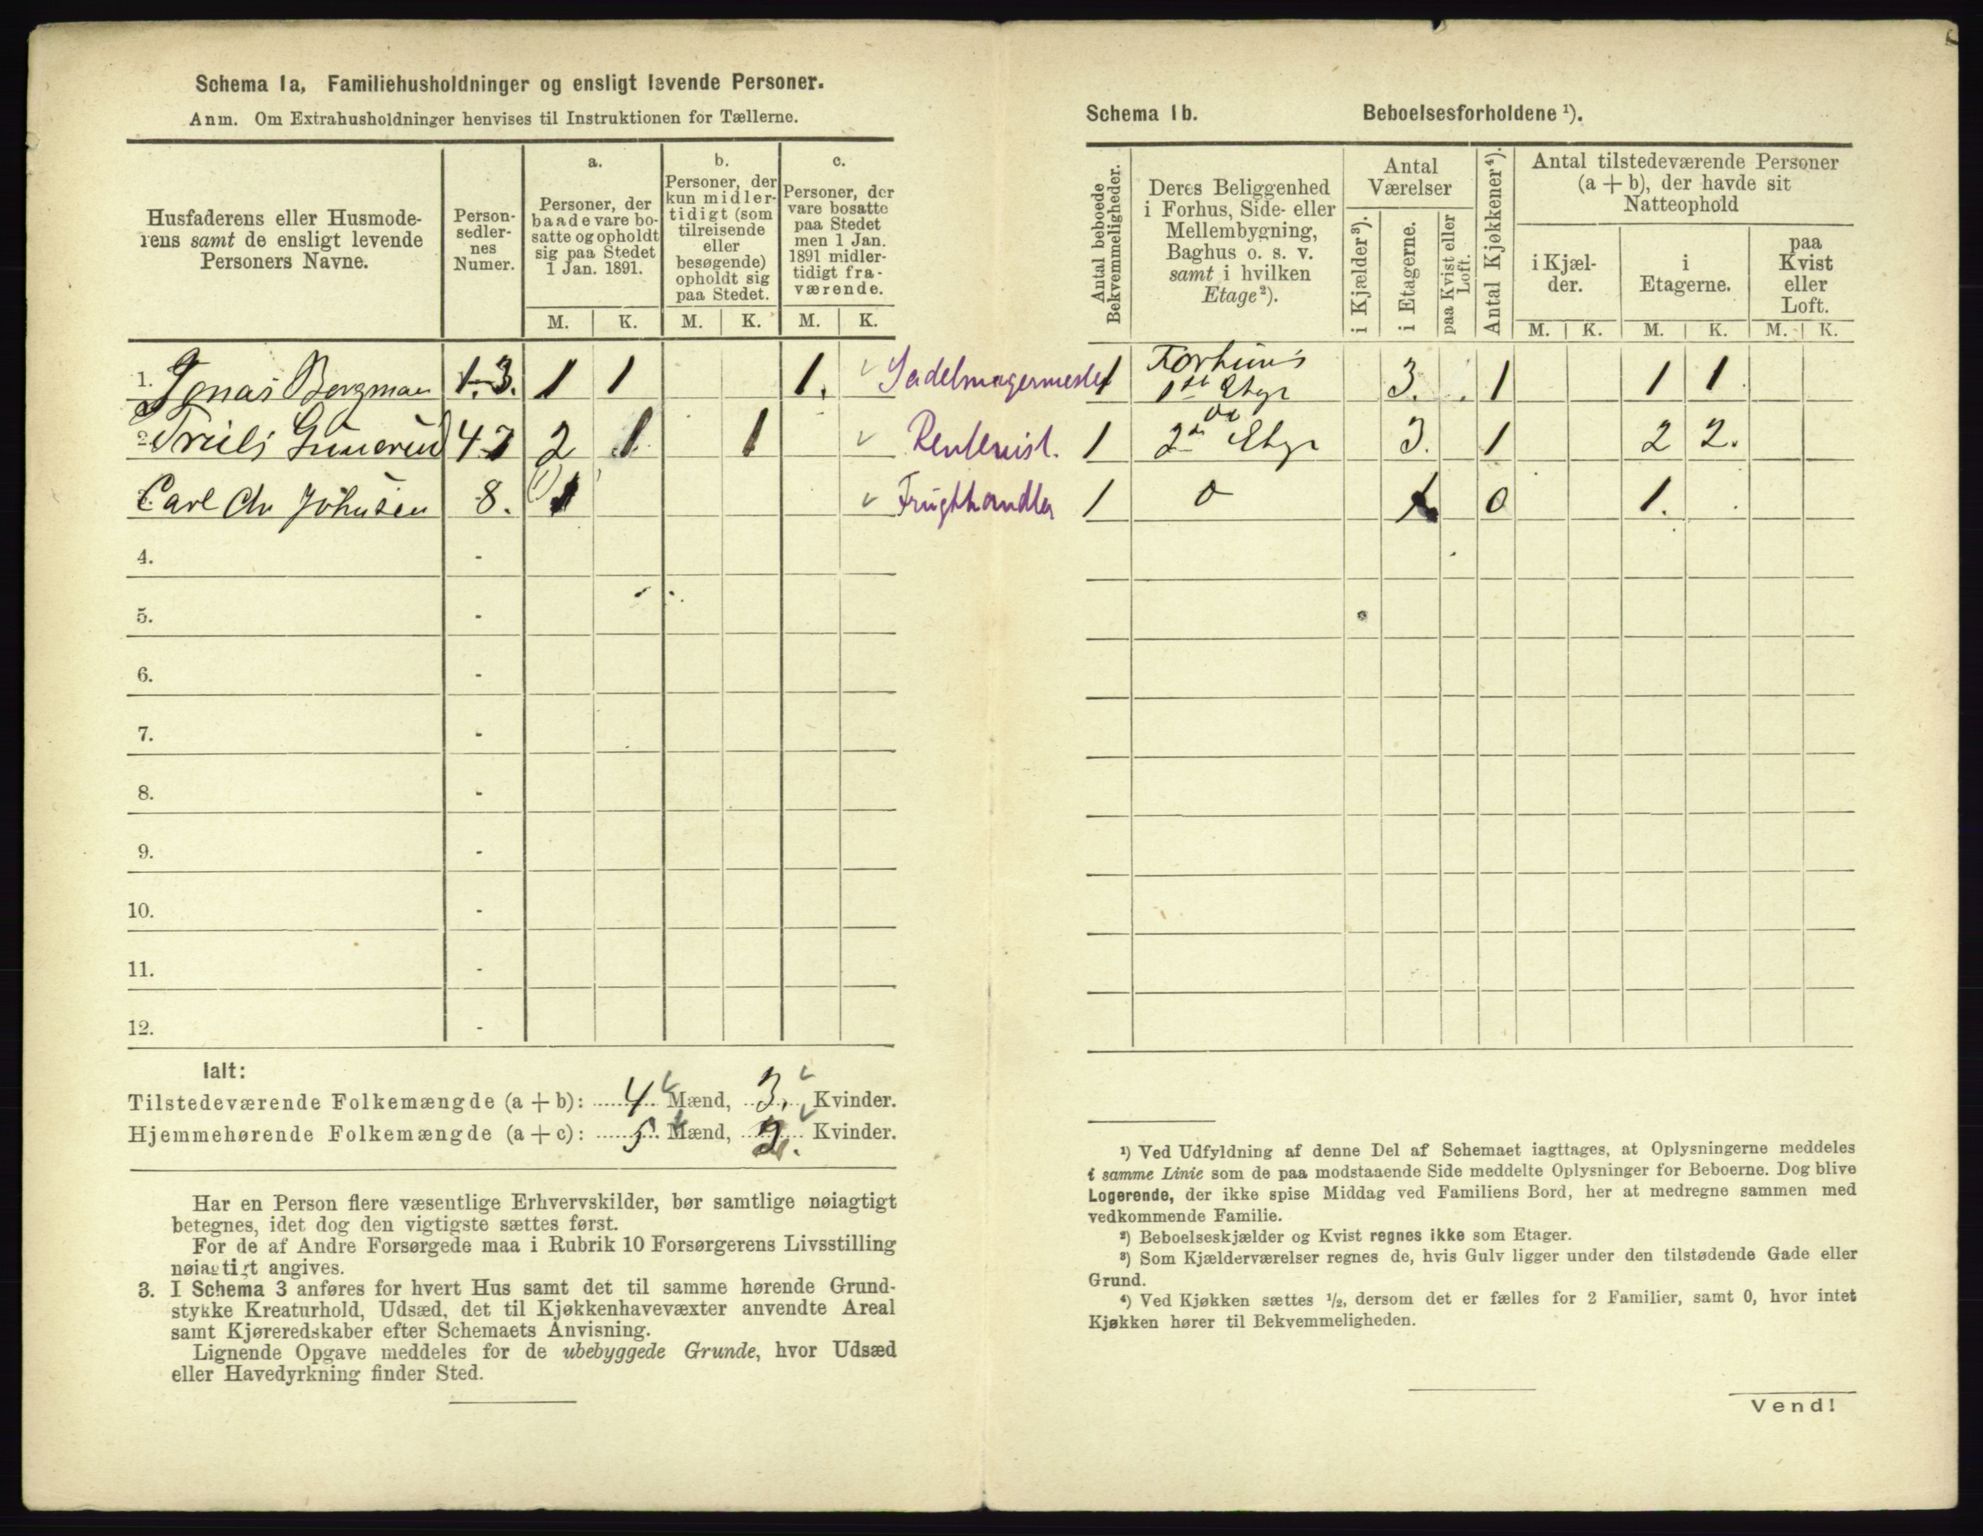 Schema 1a, Familiehusholdninger og ensligt levende Personer.
Anm. Om Extrahusholdninger henvises til Instruktionen for Tællerne.
Husfaderens eller Husmode-
rens samt de ensligt levende
Personers Navne.
Person-
sedler-
nes
Numer.
a.
Personer, der
baade vare bo-
satte og opholdt
sig paa Stedet
1 Jan. 1891.
b.
Personer, der
kun midler-
tidigt (som
tilreisende
eller
besøgende)
opholdt sig
paa Stedet.
c.
Personer, der
vare bosatte
paa Stedet
men 1 Jan.
1891 midler-
tidigt fra-
værende.
M. K. M. K. M. K.
1. Jonas Bergman 1-3. 1 1 1. Sadelmagermester
2. Truls Gunerud 4-7 2 1 1 Rentenist.
Carl Chr Johnsen 8. 1 Frugthandler
4. -
5. -
6. -
7. -
8. -
9. -
10. -
11. -
12. -
Ialt:
Tilstedeværende Folkemængde (a + b): 4 Mænd, 3. Kvinder.
Hjemmehørende Folkemængde (a + c): 5 Mænd, 2. Kvinder.
Har en Person flere væsentlige Erhvervskilder, bør samtlige nøiagtigt
betegnes, idet dog den vigtigste sættes først.
For de af Andre Forsørgede maa i Rubrik 10 Forsørgerens Livsstilling
nøiagtigt angives.
3. I Schema 3 anføres for hvert Hus samt det til samme hørende Grund-
stykke Kreaturhold, Udsæd, det til Kjøkkenhavevæxter anvendte Areal
samt Kjøreredskaber efter Schemaets Anvisning.
Lignende Opgave meddeles for de ubebyggede Grunde, hvor Udsæd
eller Havedyrkning finder Sted.
Schema 1b. Beboelsesforholdene ¹).
Antal beboede
Bekvemmeligheder.
Deres Beliggenhed
i Forhus, Side- eller
Mellembygning,
Baghus o. s. v.
samt i hvilken
Etage²).
Antal
Værelser
i Kjælder³).
i Etagerne.
paa Kvist eller
Loft.
Antal Kjøkkener⁴).
Antal tilstedeværende Personer
(a + b), der havde sit
Natteophold
i Kjæl-
der.
i
Etagerne.
paa
Kvist
eller
Loft.
M. K. M. K. M. K.
1 Forhuus
1ste Etage 3. 1 1 1
1 2den Etage 3. 1 2 2.
1 0 1 0 1.
¹) Ved Udfyldning af denne Del af Schemaet iagttages, at Oplysningerne meddeles
i samme Linie som de paa modstaaende Side meddelte Oplysninger for Beboerne. Dog blive
Logerende, der ikke spise Middag ved Familiens Bord, her at medregne sammen med
vedkommende Familie.
²) Beboelseskjælder og Kvist regnes ikke som Etager.
³) Som Kjælderværelser regnes de, hvis Gulv ligger under den tilstødende Gade eller
Grund.
⁴) Ved Kjøkken sættes ½, dersom det er fælles for 2 Familier, samt 0, hvor intet
Kjøkken hører til Bekvemmeligheden.
Vend!